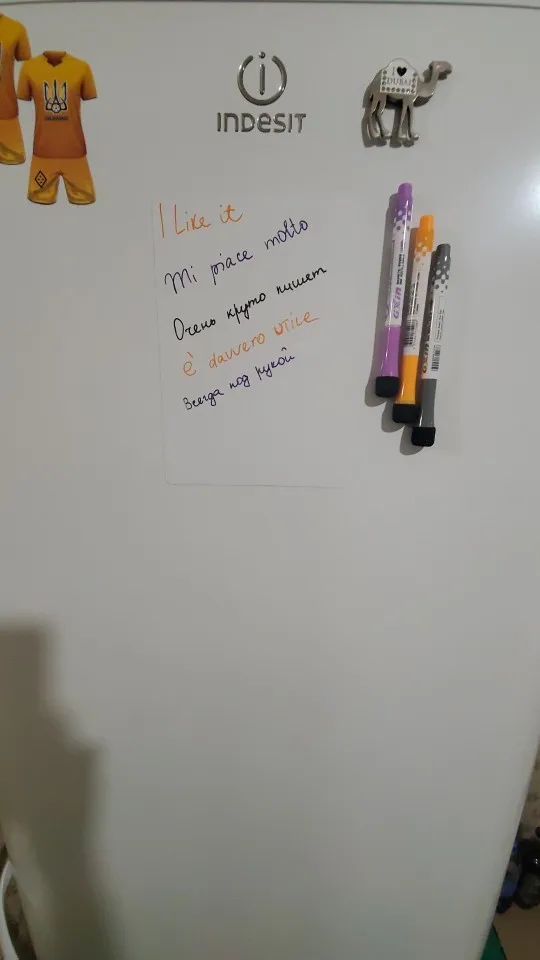 INDESIT
I ♥
DUBAI
I Like it
Mi piace molto
Очень круто пишет
è davvero utile
Всегда под рукой